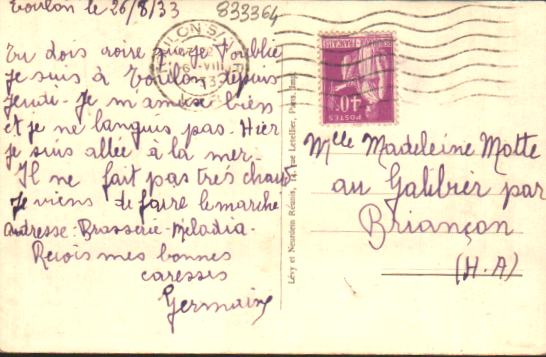 Toulon le 26/8/33
833364
Tu dois croire que je t'oublie
je suis à Toulon depuis
jeudi. Je m'amuse bien
et je ne languis pas. Hier
je suis allée à la mer.
Il ne fait pas très chaud
je viens de faire le marché
adresse: Brasserie-Meladia.
Reçois mes bonnes
caresses
Germaine
Lévy et Neurdein Réunis, 44, rue Letellier, Paris. Imp.
POSTES
40c
Mlle Madeleine Motte
au Galibier par
Briançon
(H.A)